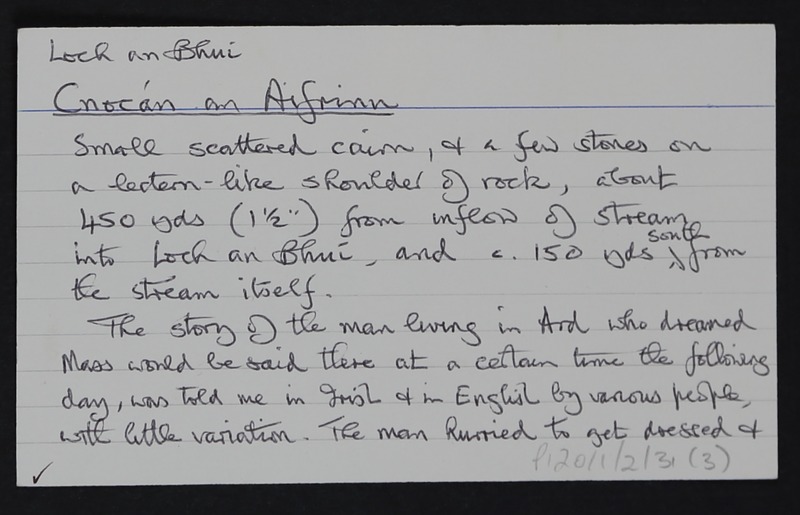 Loch an Bhuí
Cnocán an Aifrinn
Small scattered cairn, & a few stones on
a lectern-like shoulder of rock, about
450 yds (1½") from inflow of stream
into Loch an Bhuí, and c. 150 yds south from
the stream itself.
The story of the man living in Ard who dreamed
Mass would be said there at a certain time the following
day, was told me in Irish & in English by various people,
with little variation. The man hurried to get dressed &
P120/1/2/31 (3)
✓